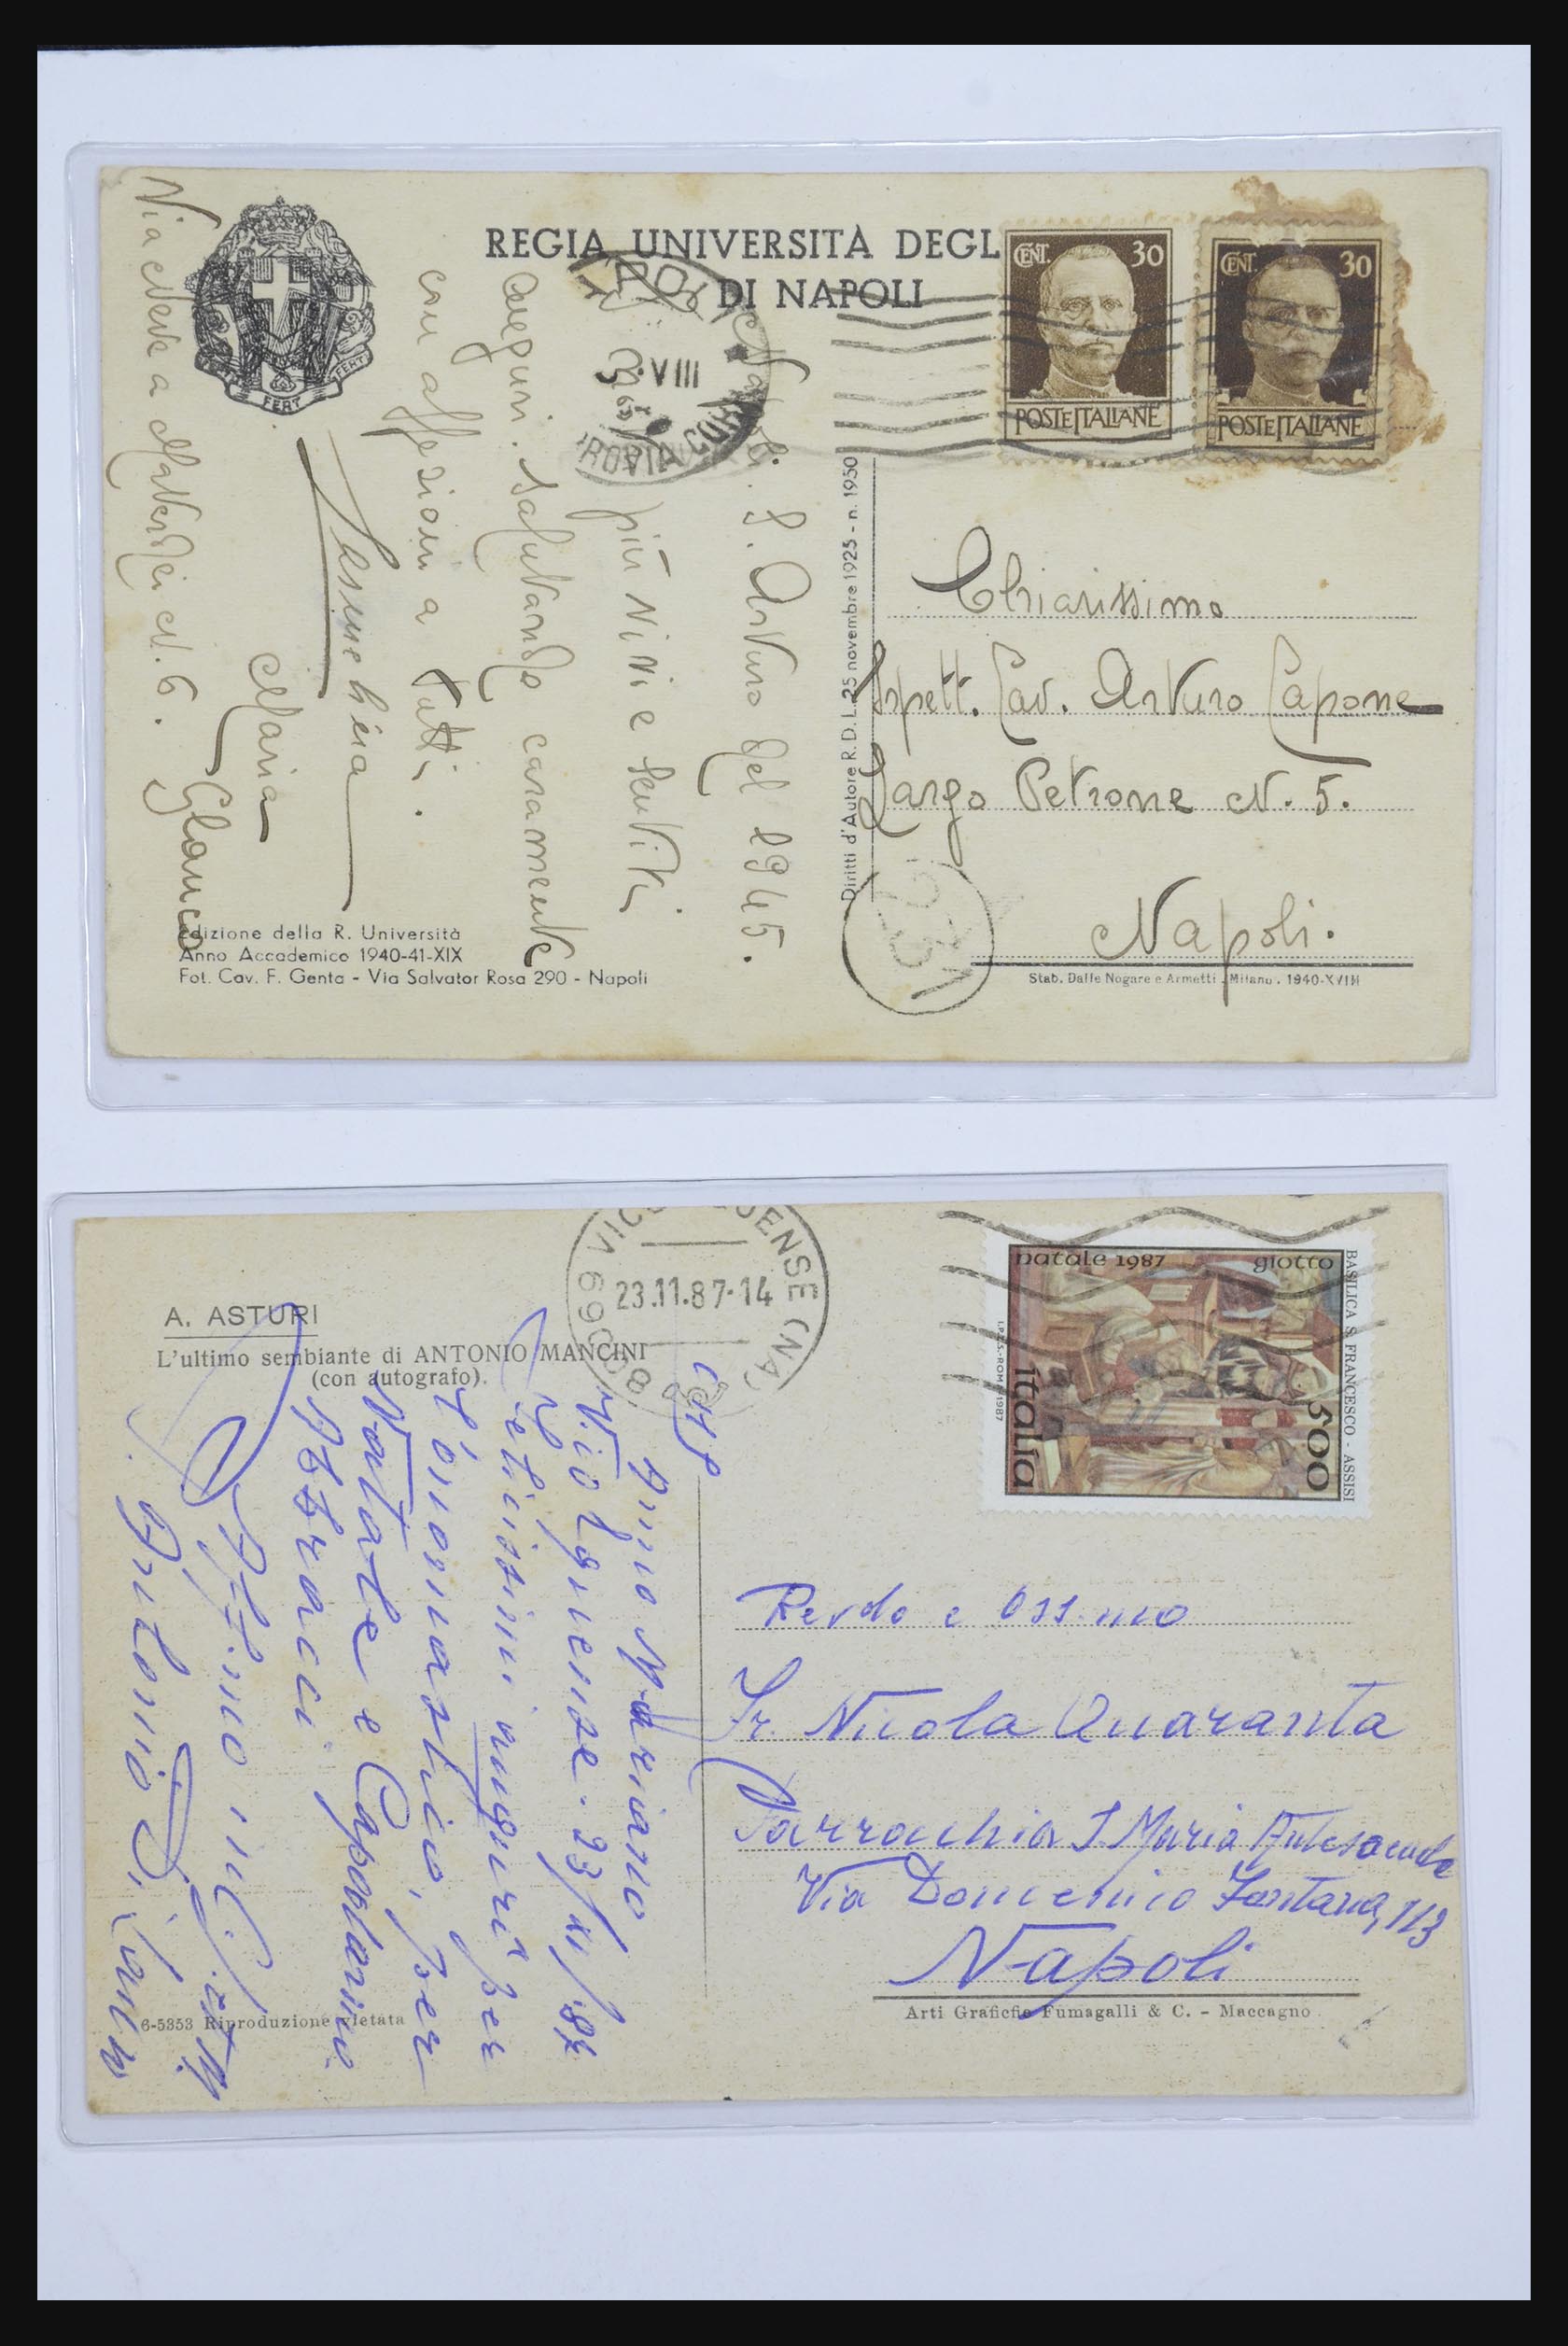 REGIA UNIVERSITÀ DEGL
DI NAPOLI
CENT. 30
POSTE ITALIANE
CENT. 30
POSTE ITALIANE
FERT FERT
VIII
Napoli. S. Arturo del 1945.
più vivi e sentiti
auguri. Salutando caramente
con affezioni a tutti.
Maria
Glauco
Via Nove a Materdei N. 6.
Diritti d'Autore R. D. L. 25 novembre 1925 - n. 1950
Chiarissimo
Ispett. Cav. Arturo Capone
Largo Petrone N. 5.
Napoli.
231
Edizione della R. Università
Anno Accademico 1940-41-XIX
Fot. Cav. F. Genta - Via Salvator Rosa 290 - Napoli
Stab. Dalle Nogare e Armetti - Milano - 1940-XVIII
23.11.87-14
80069 VICO EQUENSE (NA)
natale 1987 giotto
BASILICA S. FRANCESCO - ASSISI
I.P.Z.S.-ROMA 1987
italia 500
A. ASTURI
L'ultimo sembiante di ANTONIO MANCINI
(con autografo).
Anno Mariano
Vico Equense. 23/XI/87
Felicissimi auguri per
l'onomastico, per
Natale e Capodanno
Abbracci
Antonio
Rev.do e Oss.mo
Fr. Nicola Quaranta
Parrocchia S Maria Antesaecula
Via Domenico Fontana, 113
Napoli
6-5353 Riproduzione vietata
Arti Grafiche Fumagalli & C. - Maccagno